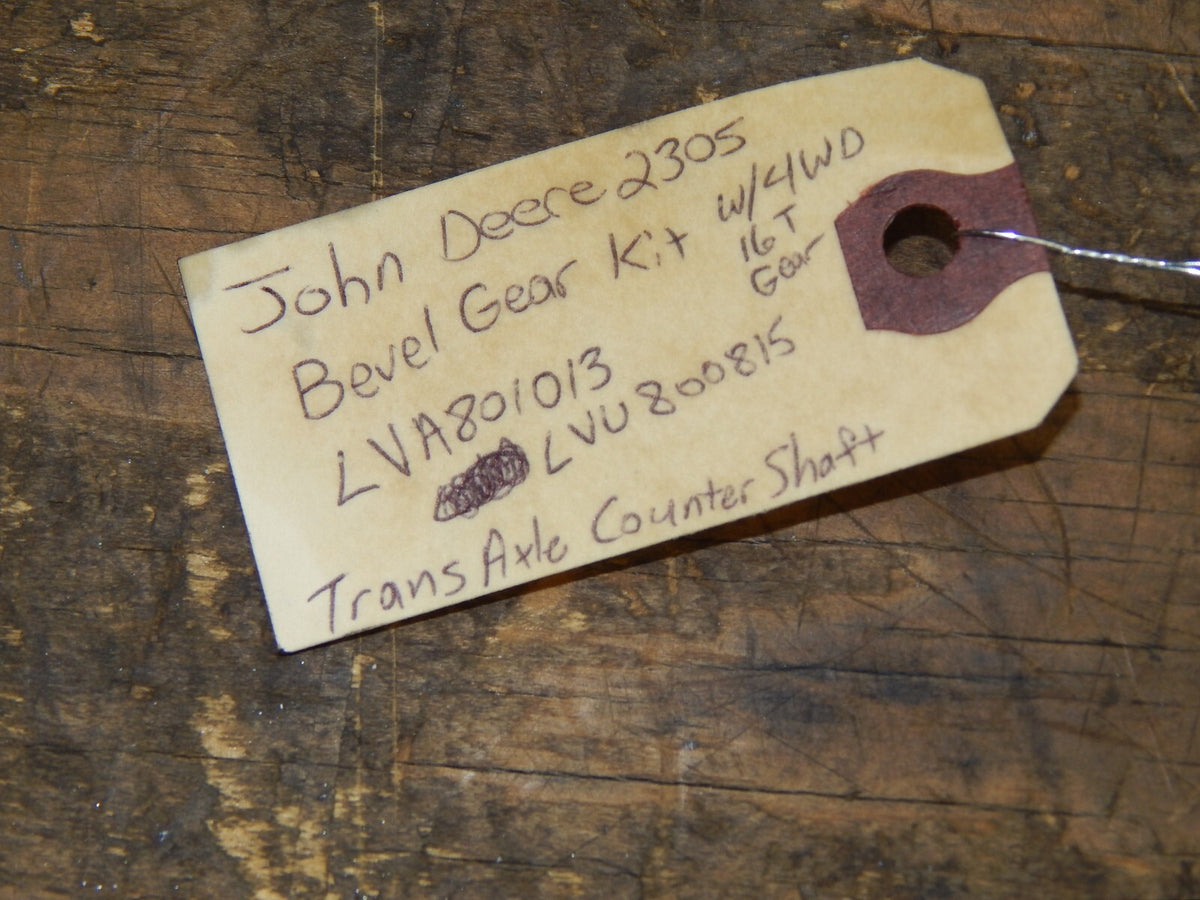 John Deere 2305
Bevel Gear Kit w/4WD
16T
Gear
LVA801013
LVU800815
TransAxle CounterShaft